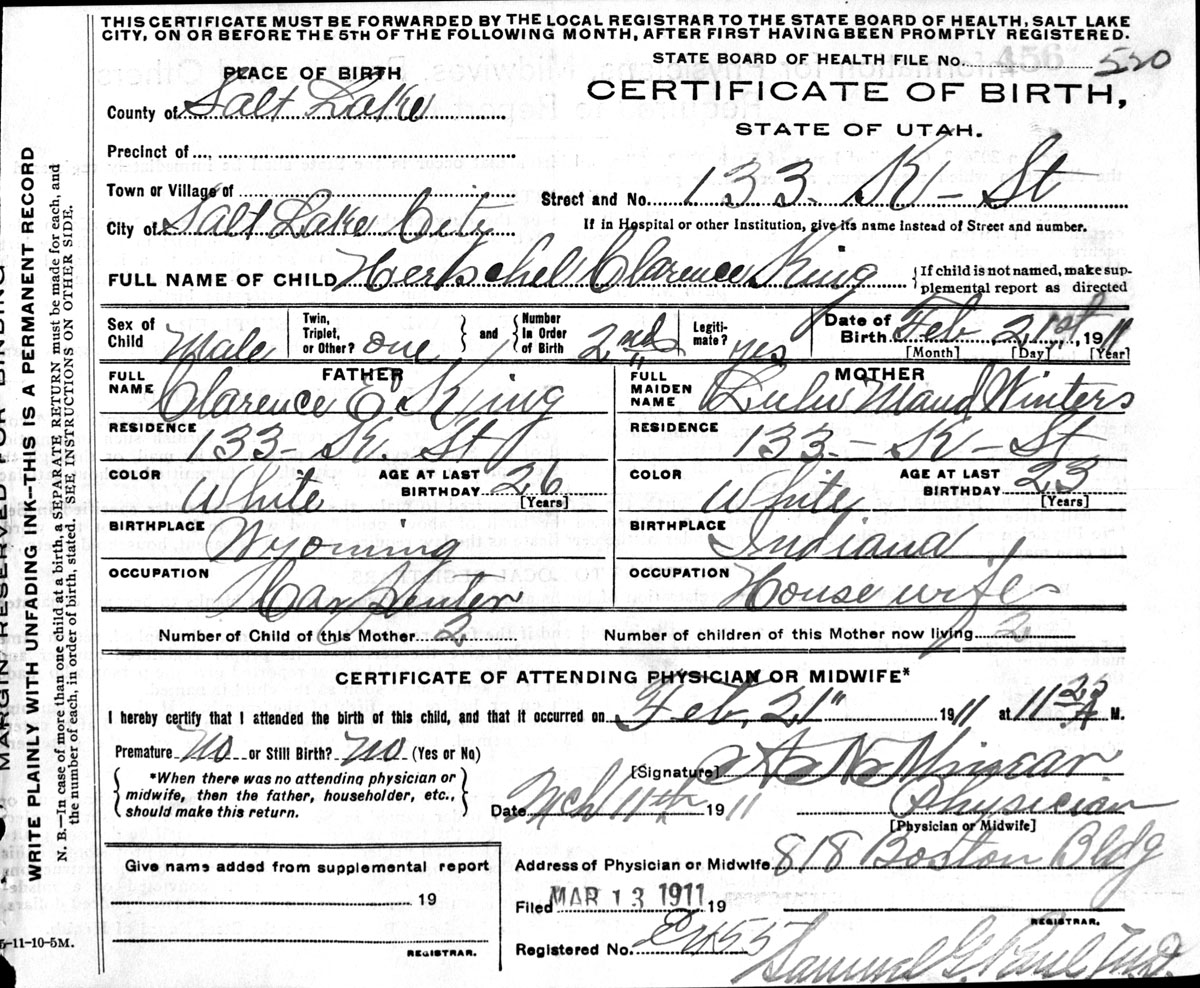 THIS CERTIFICATE MUST BE FORWARDED BY THE LOCAL REGISTRAR TO THE STATE BOARD OF HEALTH, SALT LAKE
CITY, ON OR BEFORE THE 5TH OF THE FOLLOWING MONTH, AFTER FIRST HAVING BEEN PROMPTLY REGISTERED.
STATE BOARD OF HEALTH FILE No. 456 520
PLACE OF BIRTH
CERTIFICATE OF BIRTH,
County of Salt Lake
STATE OF UTAH.
Precinct of
Town or Village of
Street and No. 133. K - St
City of Salt Lake City
If in Hospital or other Institution, give its name instead of Street and number.
FULL NAME OF CHILD Hertschel Clarence King
{ If child is not named, make sup-
plemental report as directed
Sex of Child Male
Twin, Triplet, or Other? one } and { Number in Order of Birth 2nd
Legiti-mate? yes
Date of Birth Feb 21st, 1911
[Month] [Day] [Year]
FATHER
FULL NAME Clarence E. King
MOTHER
FULL MAIDEN NAME Lulu Maud Winters
RESIDENCE 133 - K. St
RESIDENCE 133 - K - St
COLOR White AGE AT LAST BIRTHDAY 26 [Years]
COLOR White AGE AT LAST BIRTHDAY 23 [Years]
BIRTHPLACE Wyoming
BIRTHPLACE Indiana
OCCUPATION Carpenter
OCCUPATION Housewife
Number of Child of this Mother 2 Number of children of this Mother now living 2
CERTIFICATE OF ATTENDING PHYSICIAN OR MIDWIFE*
I hereby certify that I attended the birth of this child, and that it occurred on Feb. 21" 1911 at 11 A M.
Premature No or Still Birth? No (Yes or No)
{ *When there was no attending physician or
midwife, then the father, householder, etc.,
should make this return. }
[Signature]
Date Mch 11th 1911
Physician
[Physician or Midwife]
Give name added from supplemental report
19
REGISTRAR.
Address of Physician or Midwife 818 Boston Bldg
Filed MAR 13 1911 19
REGISTRAR.
Registered No.
Samuel G. Paul M.D.
MARGIN RESERVED FOR BINDING
WRITE PLAINLY WITH UNFADING INK-THIS IS A PERMANENT RECORD
N. B.-In case of more than one child at a birth, a SEPARATE RETURN must be made for each, and
the number of each, in order of birth, stated. SEE INSTRUCTIONS ON OTHER SIDE.
5-11-10-5M.